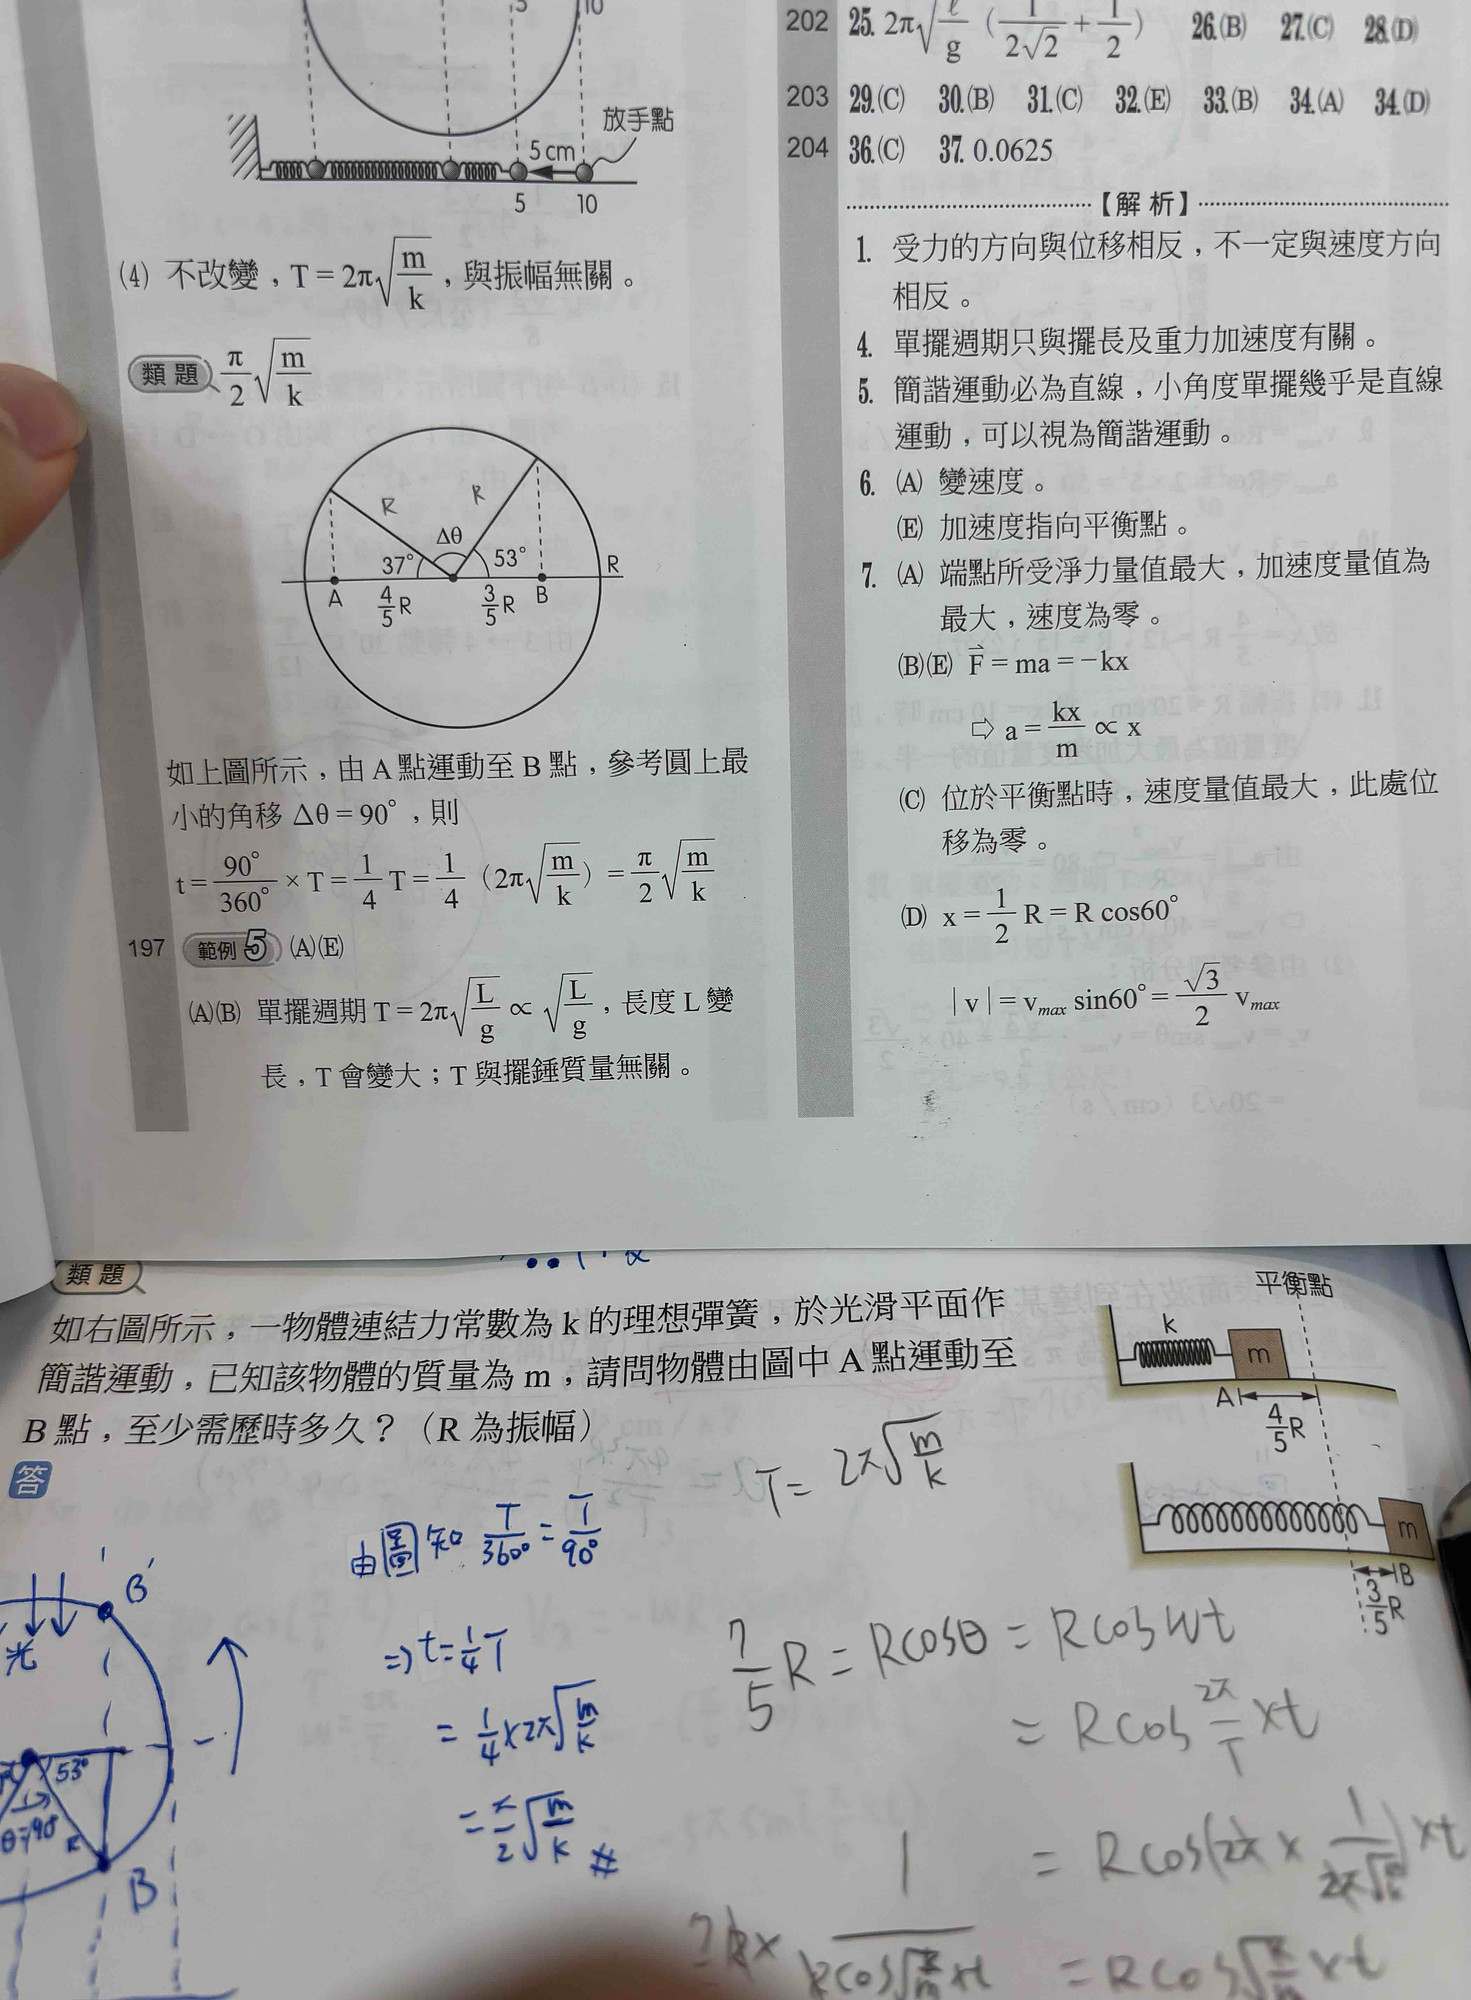 放手點
5 cm
5 10
(4) 不改變，T＝2π√(m/k)，與振幅無關。
類題 π/2 √(m/k)
R R
Δθ
37° 53° R
A 4/5 R 3/5 R B
如上圖所示，由 A 點運動至 B 點，參考圓上最
小的角移 Δθ＝90°，則
t＝90°/360° × T＝1/4 T＝1/4（2π√(m/k)）＝π/2 √(m/k)
197 範例5 (A)(E)
(A)(B) 單擺週期 T＝2π√(L/g) ∝ √(L/g)，長度 L 變
長，T 會變大；T 與擺錘質量無關。
202 25. 2π√(ℓ/g)（1/2√2＋1/2） 26.(B) 27.(C) 28.(D)
203 29.(C) 30.(B) 31.(C) 32.(E) 33.(B) 34.(A) 34.(D)
204 36.(C) 37. 0.0625
【解析】
1. 受力的方向與位移相反，不一定與速度方向
相反。
4. 單擺週期只與擺長及重力加速度有關。
5. 簡諧運動必為直線，小角度單擺幾乎是直線
運動，可以視為簡諧運動。
6. (A) 變速度。
(E) 加速度指向平衡點。
7. (A) 端點所受淨力量值最大，加速度量值為
最大，速度為零。
(B)(E) F⃗＝ma＝－kx
⇨ a＝kx/m ∝ x
(C) 位於平衡點時，速度量值最大，此處位
移為零。
(D) x＝1/2 R＝R cos60°
|v|＝vmax sin60°＝√3/2 vmax
類題
如右圖所示，一物體連結力常數為 k 的理想彈簧，於光滑平面作
簡諧運動，已知該物體的質量為 m，請問物體由圖中 A 點運動至
B 點，至少需歷時多久？（R 為振幅）
答
平衡點
k
m
A
4/5 R
m
B
3/5 R
T＝2π√(m/k)
由圖知 T/360°＝T/90°
⇒ t＝1/4 T
＝1/4×2π√(m/k)
＝π/2 √(m/k) #
B'
光
53°
θ=90°
R
B
7/5 R＝Rcosθ＝Rcoswt
＝Rcos 2π/T ×t
＝Rcos(2π×1/2π√(m/k))×t
＝Rcos√(k/m)×t